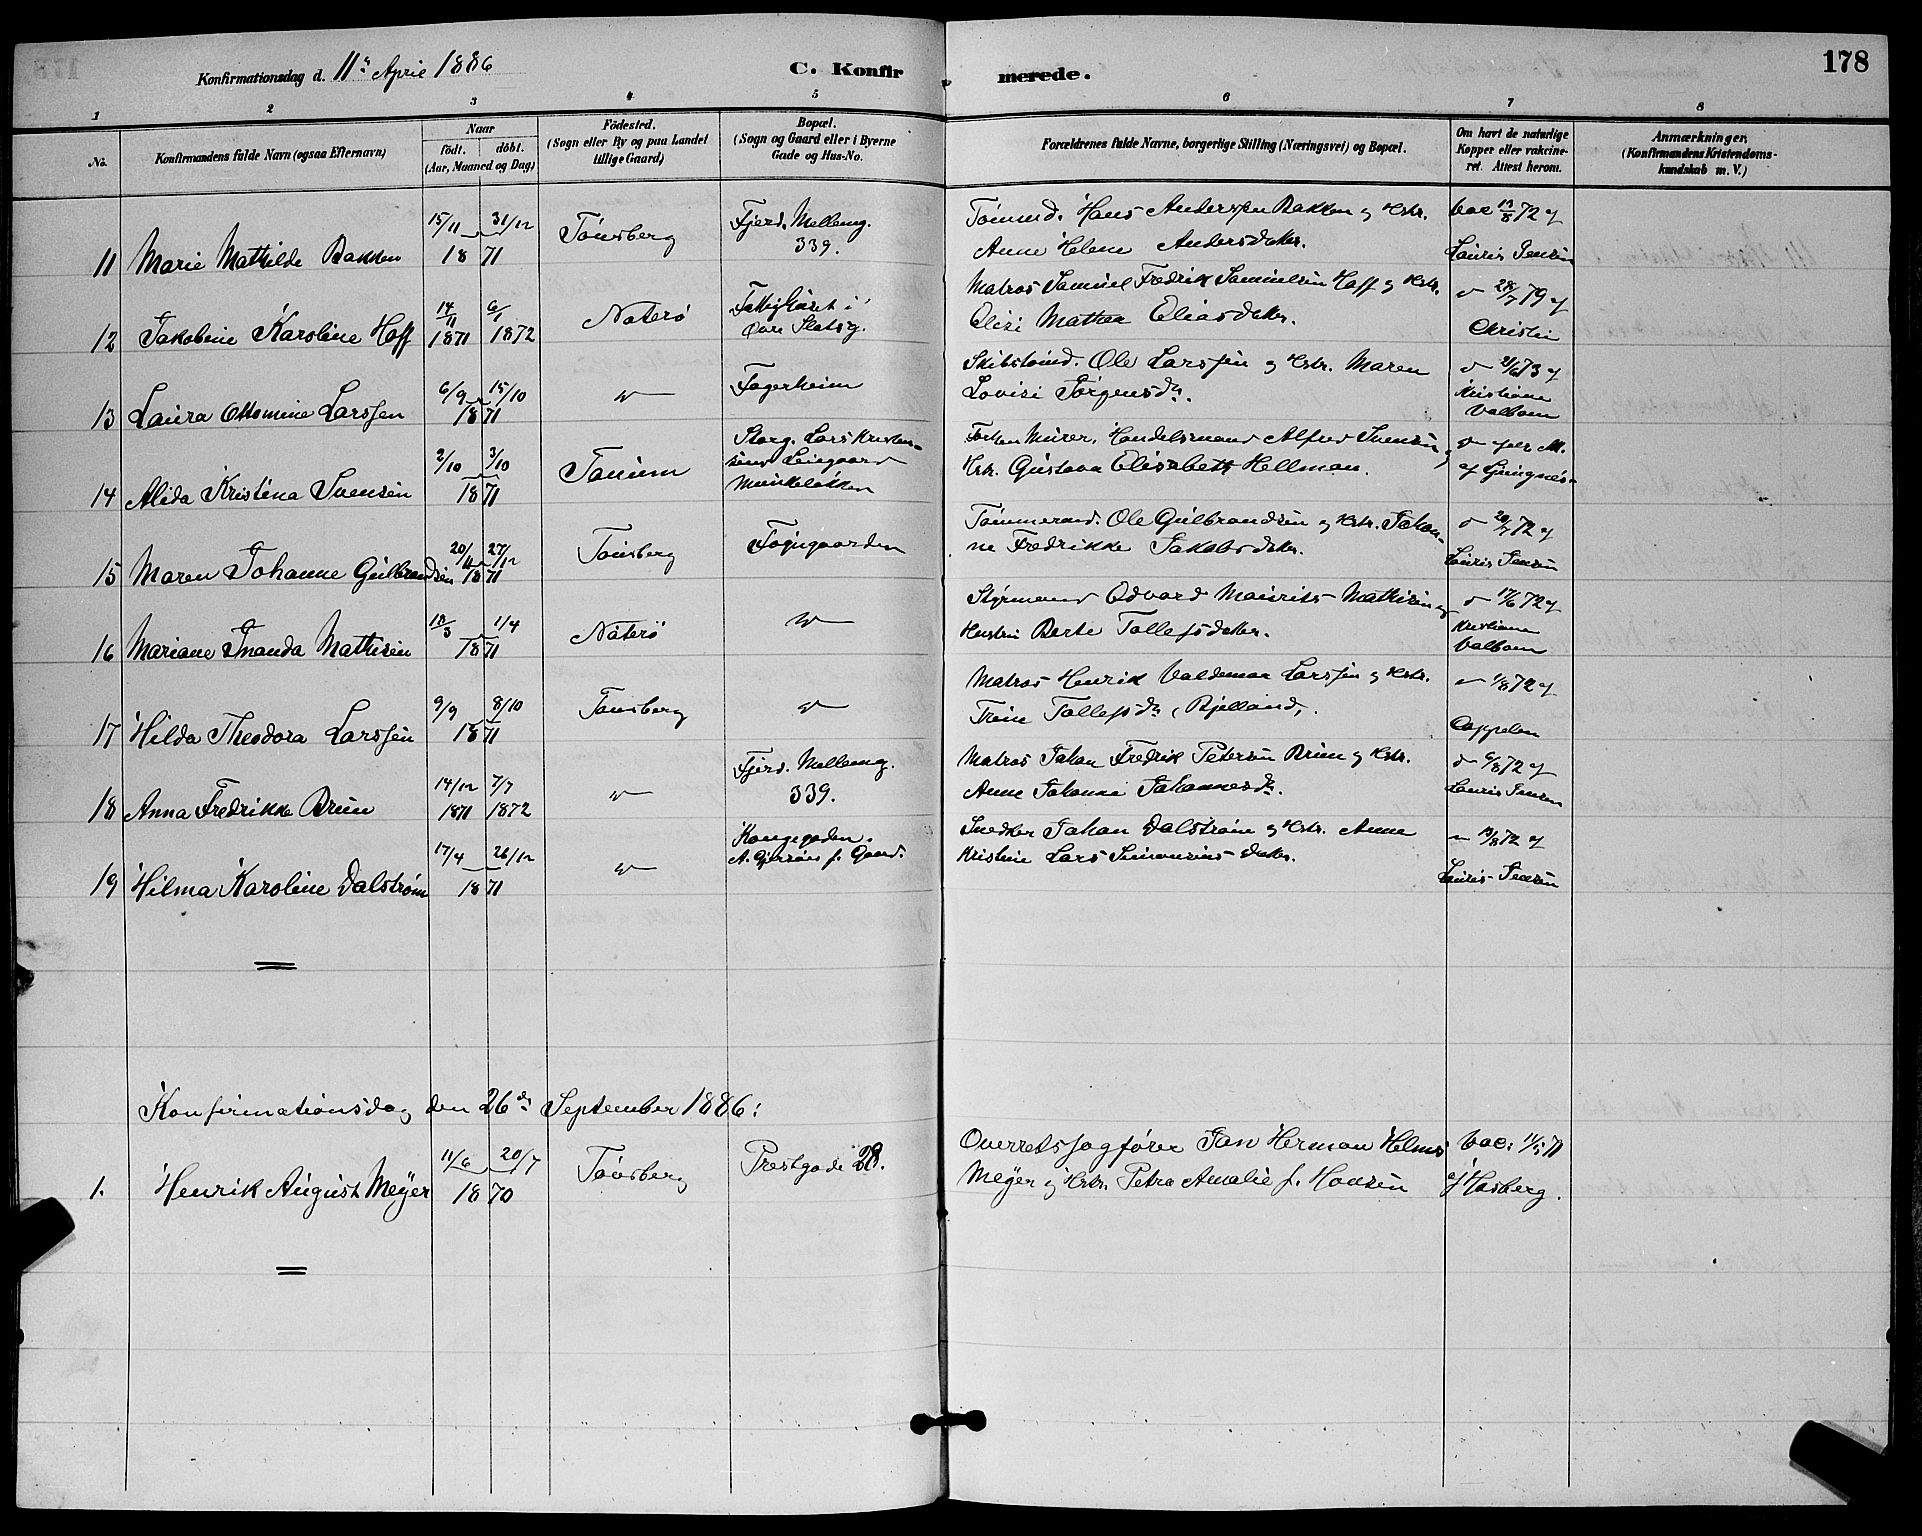 Konfirmationsdag d. 11te April 1886
C. Konfirmerede.
178
1 2 3 4 5 6 7 8
No.
Konfirmandens fulde Navn (ogsaa Efternavn)
Naar
födt. döbt.
(Aar, Maaned og Dag)
Födested.
(Sogn eller By og paa Landet
tillige Gaard)
Bopæl.
(Sogn og Gaard eller i Byerne
Gade og Hus-No.
Forældrenes fulde Navne, borgerlige Stilling (Næringsvei) og Bopæl.
Om havt de naturlige
Kopper eller vakcine-
ret. Attest herom.
Anmærkninger.
(Konfirmandens Kristendoms-
kundskab m. V.)
11 Marie Mathilde Bakken 15/11 31/12 1871 Tönsberg
Fjerd. Mellemg.
339.
Tömmd. Hans Anderssen Bakken og Hstr.
Anne Helene Andersdater.
vac 13/8 72 af
Lauris Jensen
12 Jakobine Karoline Hoff 14/11 1871 6/1 1872 Nöterö
Fattighuset i
Övre Slotsg.
Matros Samuel Fredrik Samuelsen Hoff og Hstr.
Elisi Mathea Eliasdater.
28/7 79 af
Christie
13 Laura Ottomine Larssen 6/9 15/10 1871
Fagerheim
Skibstömd. Ole Larssen og Hstr. Maren
Lovisi Jörgensdr.
73 af
Kristiane
Valboen
14 Alida Kristina Svensen 2/10 3/10 1871 Tanum
Storg. Lars Kristen-
sens Leiegaard
Munkeløkken
Murer, Handelsmand Alfred Svensen og
Hstr. Gustava Elisabeth Hellman.
af Ljungnés-
15 Maren Johanne Gulbrandsen 20/11 27/12 1871 Tönsberg
Föjngaarden
Tömmermd. Ole Gulbrandsen og Hstr. Johan-
ne Fredrikke Jakobsdater.
20/7 72 af
Lauris Jensen
16 Mariane Amanda Mathisen 18/3 1/4 1871 Nöterö
Styrmand Edvard Mauritz Mathisen og
Hustru Berte Tollefsdater.
17/6 72 af
Kristiane
Valboen
17 Hilda Theodora Larssen 9/9 8/10 1871 Tönsberg
Matros Henrik Valdemar Larssen og Hstr.
Trine Tollefsdr. (Bjelland).
1/8 72 af
Cappelen
18 Anna Fredrikke Brun 14/12 1871 7/7 1872
Fjerd. Mellemg.
339.
Matros Johan Fredrik Petersen Brun og Hstr.
Anne Johanne Johannesdr.
6/8 72 af
Lauris Jensen
19 Hilma Karoline Dalström 17/4 26/12 1871
Kongegaden.
Snedker Johan Dalström og Hstr. Anne
Kristine Lars Simonsens dater.
13/8 72 af
Lauris Jensen
Konfirmationsdag den 26de September 1886:
1. Henrik August Meyer 11/6 20/7 1870 Tönsberg
Prestgade 28.
Overretssagförer Jan Herman Helms
Meyer og Hstr. Petra Amalie f. Hansen
vac: 11/5 71
af Hasberg.